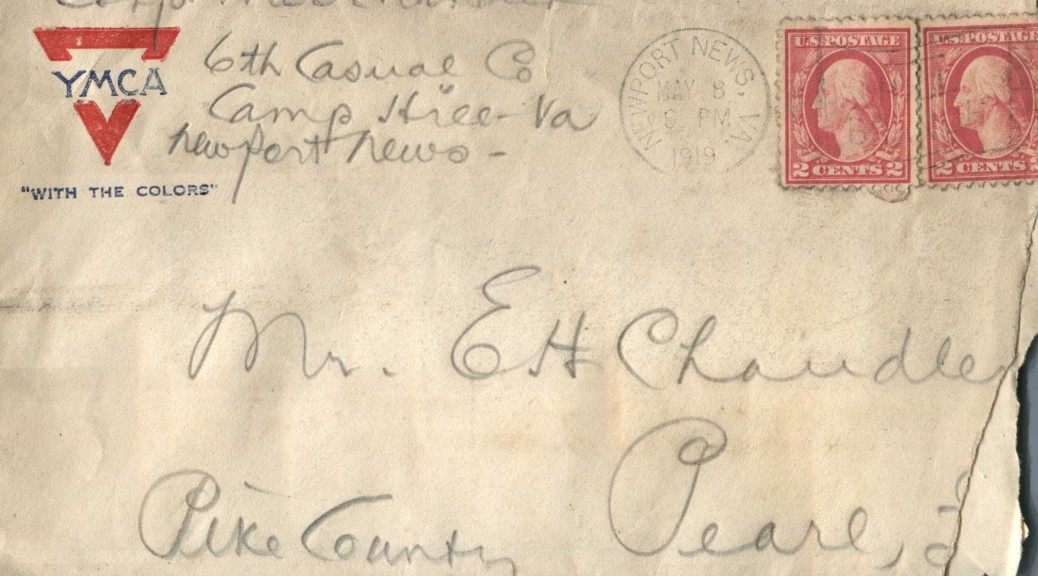 6th Casual Co
Camp Hill-Va
Newport News-
YMCA
"WITH THE COLORS"
NEWPORT NEWS, VA.
MAY 8
PM
1919
U.S. POSTAGE
2 CENTS 2
U.S. POSTAGE
2 CENTS 2
Mr. E H Chandle
Pearl,
Pike County